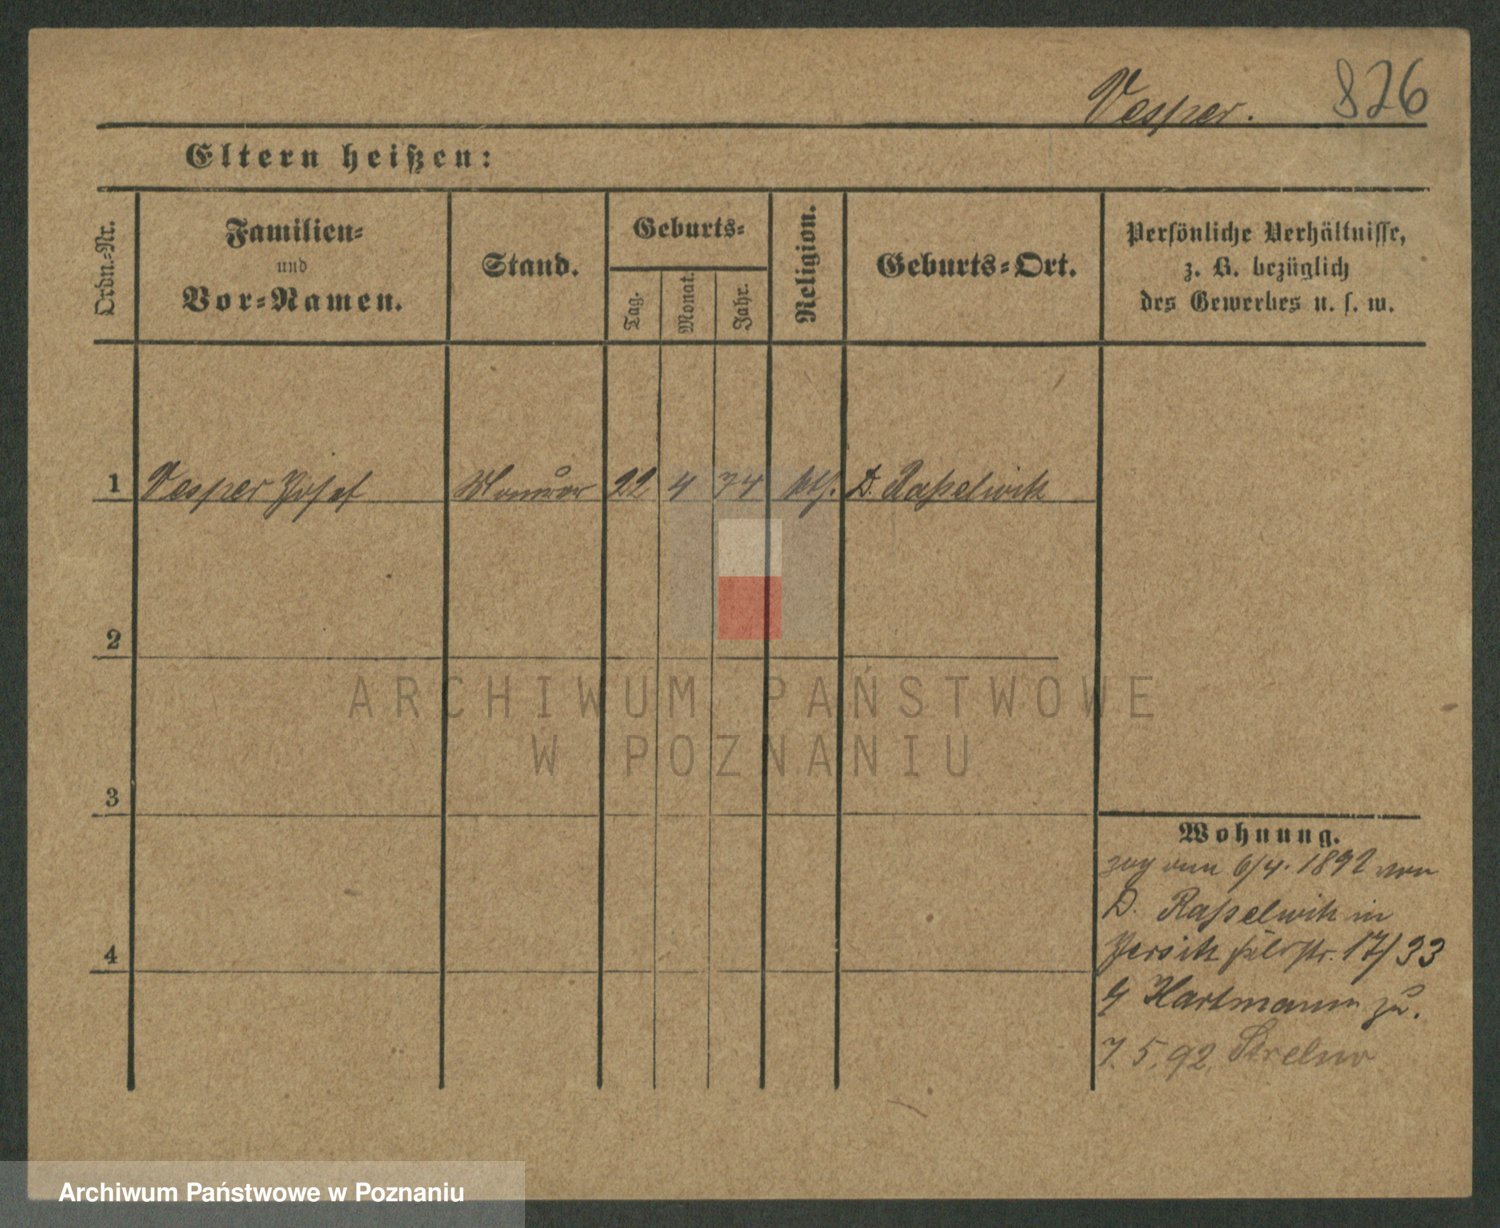 Vesper. 826
Eltern heißen:
Ordn.-Nr.
Familien-
und
Vor-Namen.
Stand.
Geburts-
Tag.
Monat.
Jahr.
Religion.
Geburts-Ort.
Persönliche Verhältnisse,
z. B. bezüglich
des Gewerbes u. s. w.
1 Vesper Josef 22 4 74 kth. D. Raßelwitz
2
3
4
Wohnung.
zog am 6/4. 1892 von
D. Raßelwitz in
Jersitz 17/33
Hartmann zu.
7. 5. 92. Strelno
ARCHIWUM PAŃSTWOWE
W POZNANIU
Archiwum Państwowe w Poznaniu